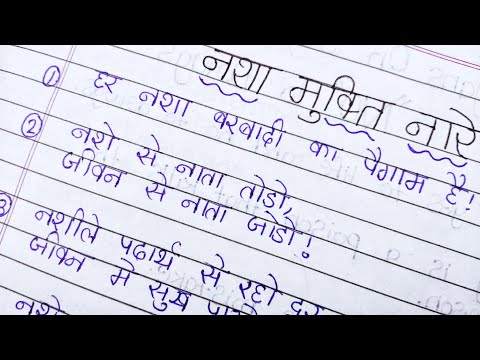 नशा मुक्ति नारे
① हर नशा बरबादी का पैगाम है!
② नशे से नाता तोडो,
जीवन से नाता जोडो!
③ नशीले पदार्थ से रहो दूर
जीवन मे सुख
नशे